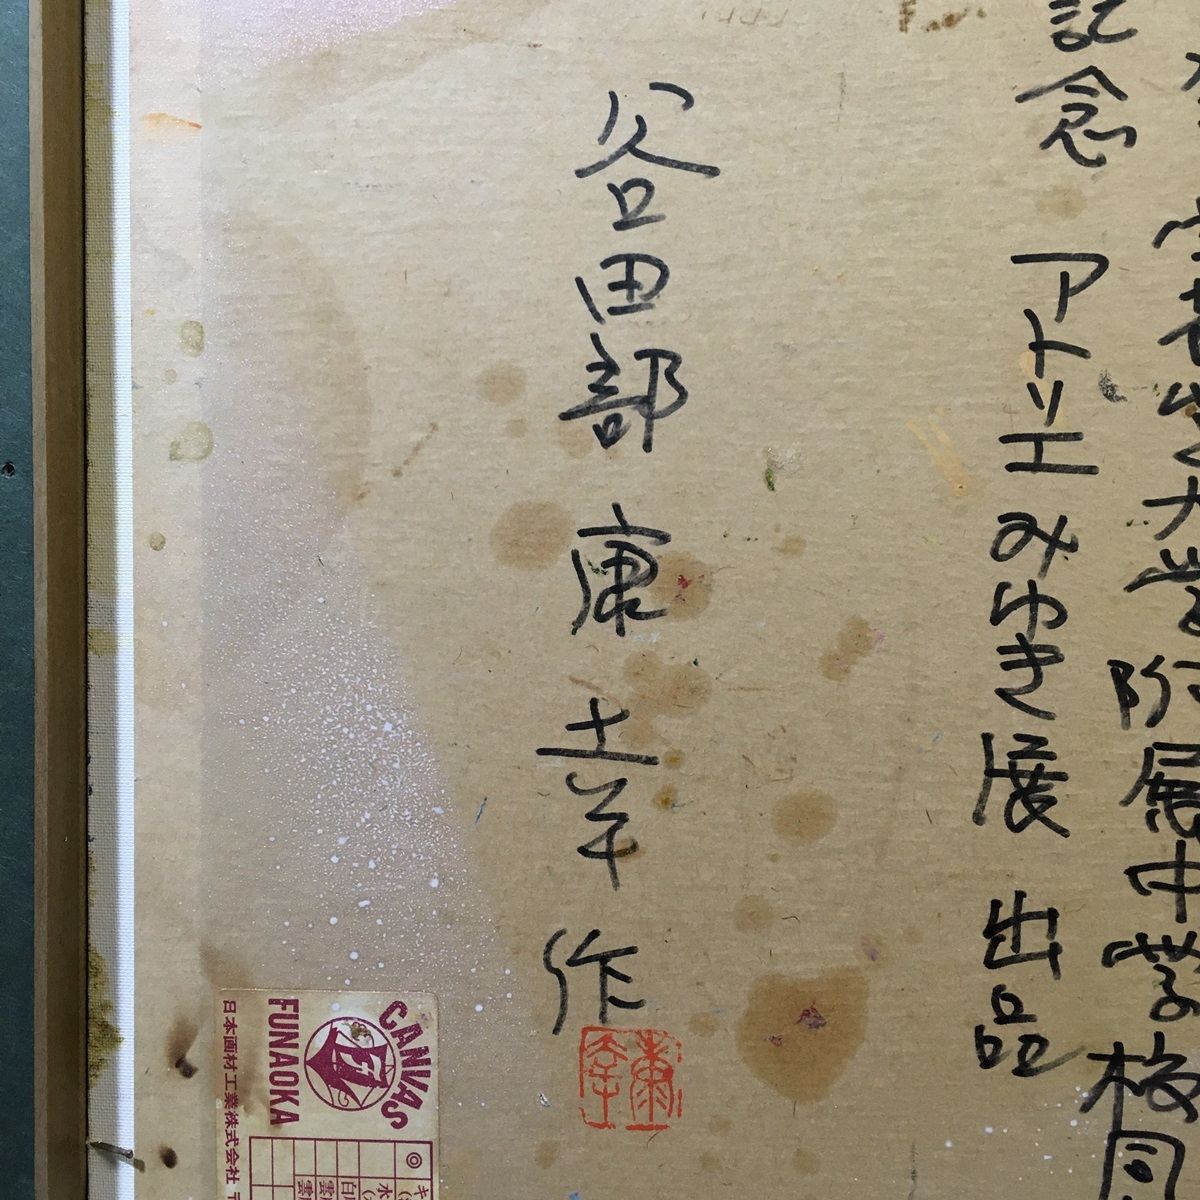 大学 附属中学校同
記念 アトリエ みゆき展 出品
谷田部 康幸 作
康幸
CANVAS
FUNAOKA
日本画材工業株式会社